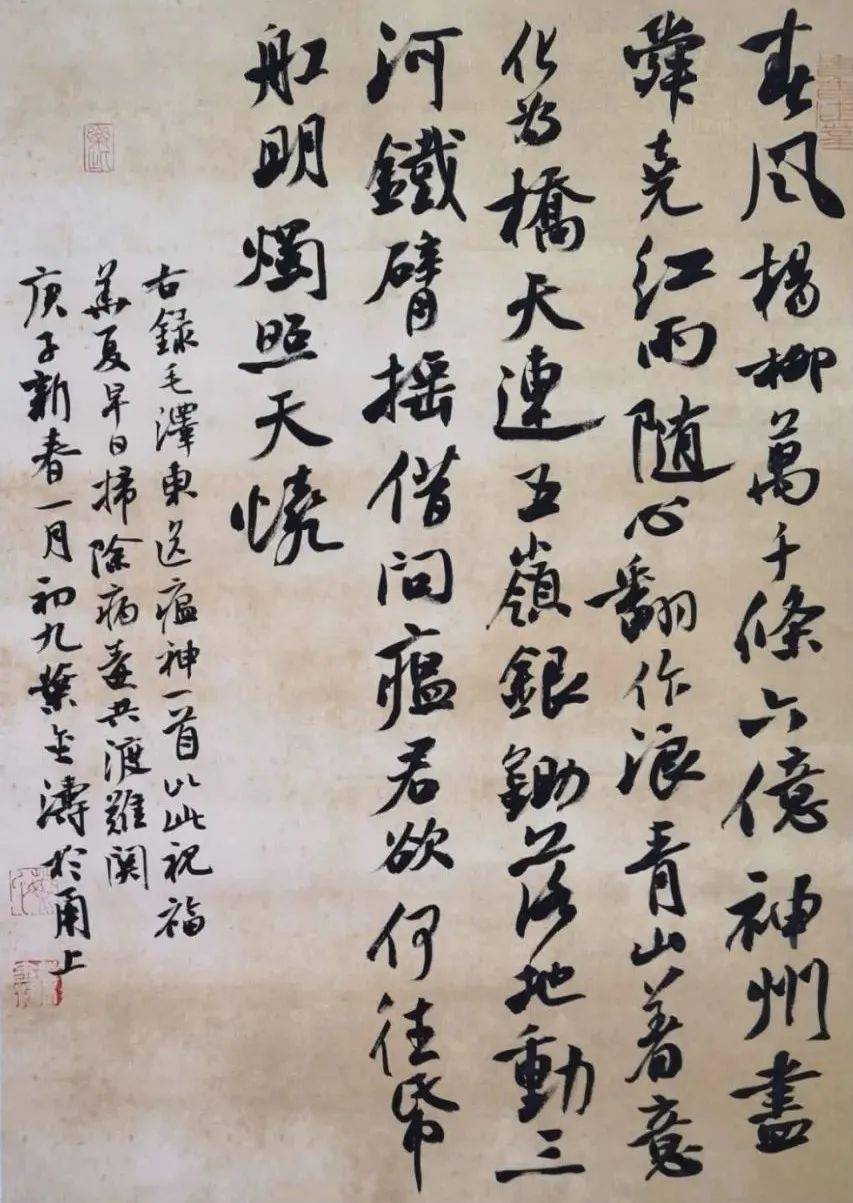 春風楊柳萬千條六億神州盡
舜堯红雨随心翻作浪青山著意
化为橋天連五嶺銀鋤落地動三
河鐵臂摇借问瘟君欲何往帋
船明燭照天燒
右録毛澤東送瘟神一首以此祝福
華夏早日掃除病毒共渡難関
庚子新春一月初九葉金濤於甬上